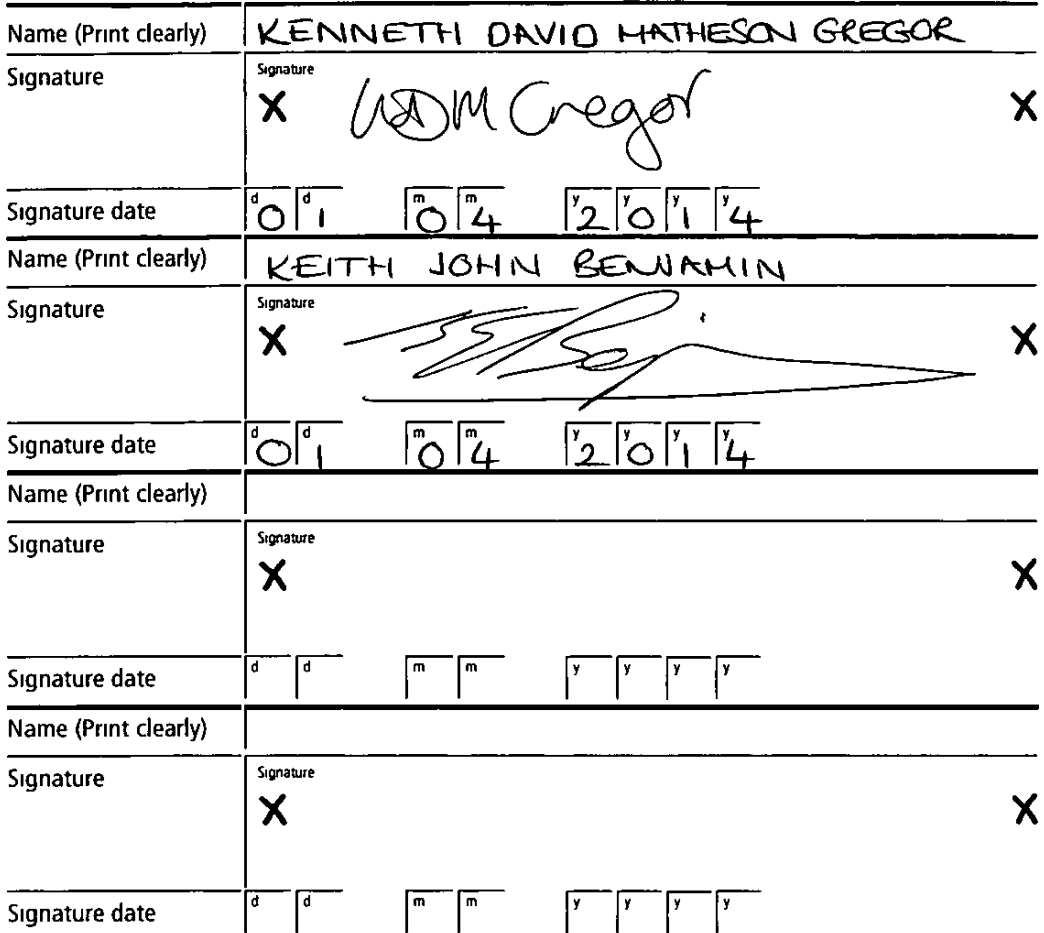 Name (Print clearly) KENNETH DAVID MATHESON GREGOR
Signature Signature
X KDM Gregor X
Signature date d 0 d 1 m 0 m 4 y 2 y 0 y 1 y 4
Name (Print clearly) KEITH JOHN BENJAMIN
Signature Signature
X X
Signature date d 0 d 1 m 0 m 4 y 2 y 0 y 1 y 4
Name (Print clearly)
Signature Signature
X X
Signature date d d m m y y y y
Name (Print clearly)
Signature Signature
X X
Signature date d d m m y y y y